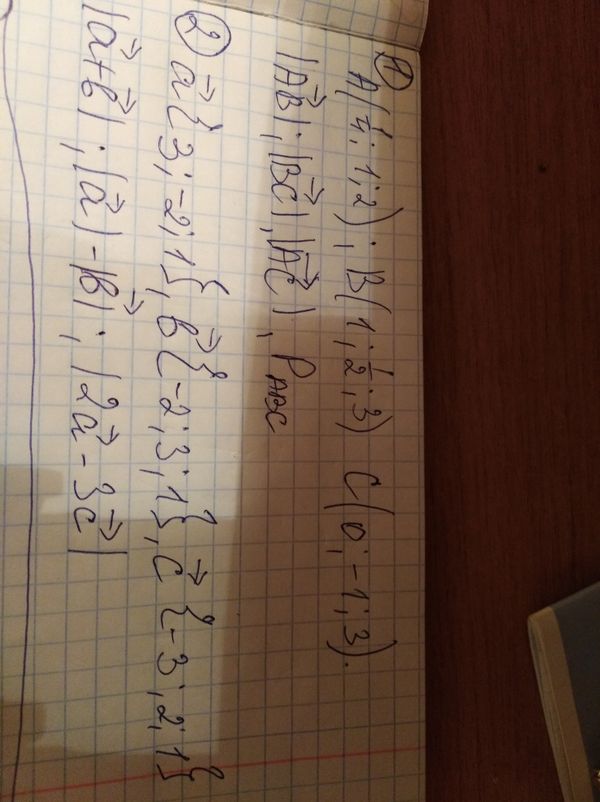 ①
A(1/4; 1; 2); B(1; 1/2; 3) C(0; -1; 3).
|A⃗B⃗|; |B⃗C⃗|, |A⃗C⃗|, P_ABC
② a⃗{3; -2; 1}, b⃗{-2; 3; 1}, c⃗{-3; 2; 1}
|a⃗+b⃗|; |a⃗|-|b⃗|; |2a⃗-3c⃗|